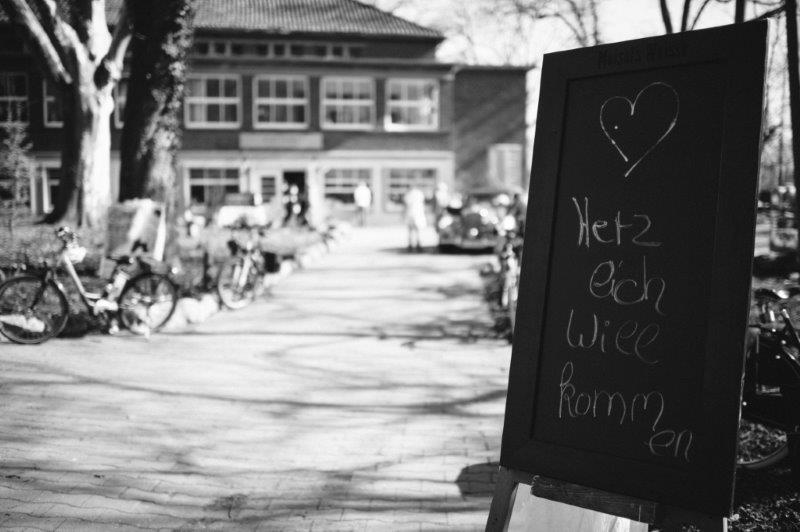 Herz
eich
Will
komm
en